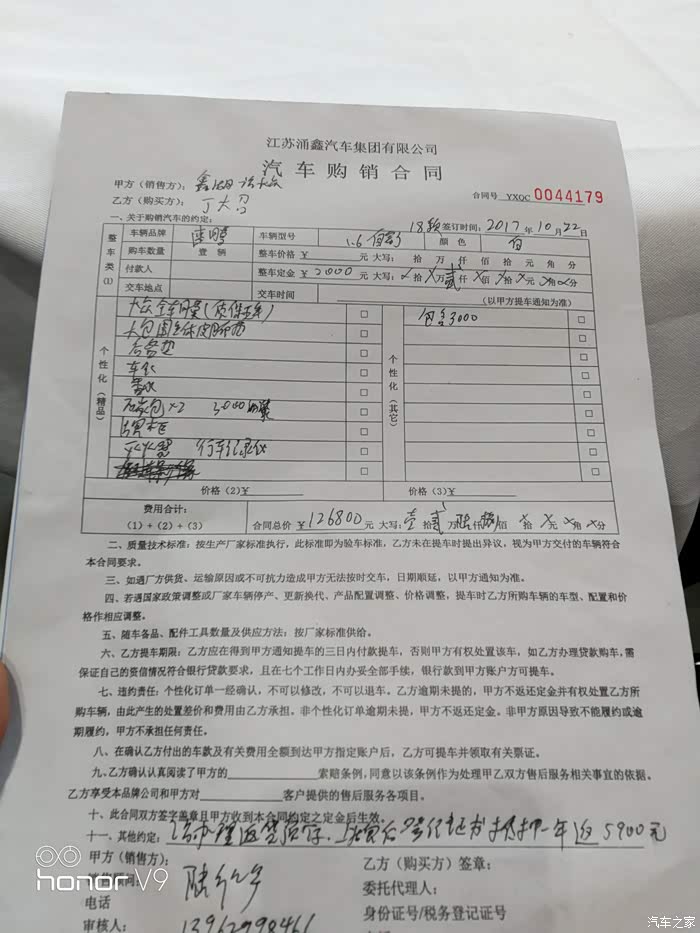 江苏涌鑫汽车集团有限公司
汽车购销合同
甲方（销售方）：鑫
合同号 YXQC 0044179
乙方（购买方）：丁大
一、关于购销汽车的约定： 18款 签订时间：2017年10月22日
整车类(1) 车辆品牌 车辆型号 1.6 自 颜色 白
购车数量 壹辆 整车价格 ¥ 元 大写： 拾 万 仟 佰 拾 元 角 分
付款人 整车定金 ¥2000元 大写：拾 万 贰仟 佰 拾 元 角 分
交车地点 交车时间 （以甲方提车通知为准）
个性化（精品） 个性化（其它）
大众全车 (质保
大包围 皮
后备垫
车衣
×2 3000
牌框
灭火器 行车记录仪
3000
价格（2）¥ 价格（3）¥
费用合计：
（1）+（2）+（3） 合同总价 ¥126800元 大写：壹拾贰万陆仟捌佰 × 拾 × 元 × 角 × 分
二、质量技术标准：按生产厂家标准执行，此标准即为验车标准，乙方未在提车时提出异议，视为甲方交付的车辆符合
本合同要求。
三、如遇厂方供货、运输原因或不可抗力造成甲方无法按时交车，日期顺延，以甲方通知为准。
四、若遇国家政策调整或厂家车辆停产、更新换代、产品配置调整、价格调整，提车时乙方所购车辆的车型、配置和价
格作相应调整。
五、随车备品、配件工具数量及供应方法：按厂家标准供给。
六、乙方提车期限：乙方应在得到甲方通知提车的三日内付款提车，否则甲方有权处置该车，如乙方办理贷款购车，需
保证自己的资信情况符合银行贷款要求，且在七个工作日内办妥全部手续，银行款到甲方账户方可提车。
七、违约责任：个性化订单一经确认，不可以修改，不可以退车。乙方逾期未提的，甲方不返还定金并有权处置乙方所
购车辆，由此产生的处置差价和费用由乙方承担。非个性化订单逾期未提，甲方不返还定金。非甲方原因导致不能履约或逾
期履约，甲方不承担任何责任。
八、在确认乙方付出的车款及有关费用全额到达甲方指定账户后，乙方可提车并领取有关票证。
九、乙方确认认真阅读了甲方的 索赔条例，同意以该条例作为处理甲乙双方售后服务相关事宜的依据。
乙方享受本品牌公司和甲方对 客户提供的售后服务各项目。
十、此合同双方签字盖章且甲方收到本合同约定之定金后生效。
十一、其他约定： 办理 上 后 登记证书抵押一年返5900元
甲方（销售方）： 乙方（购买方）签章：
销售顾问：陆 委托代理人：
电话 身份证号/税务登记证号
审核人：13962998461
honor V9
汽车之家